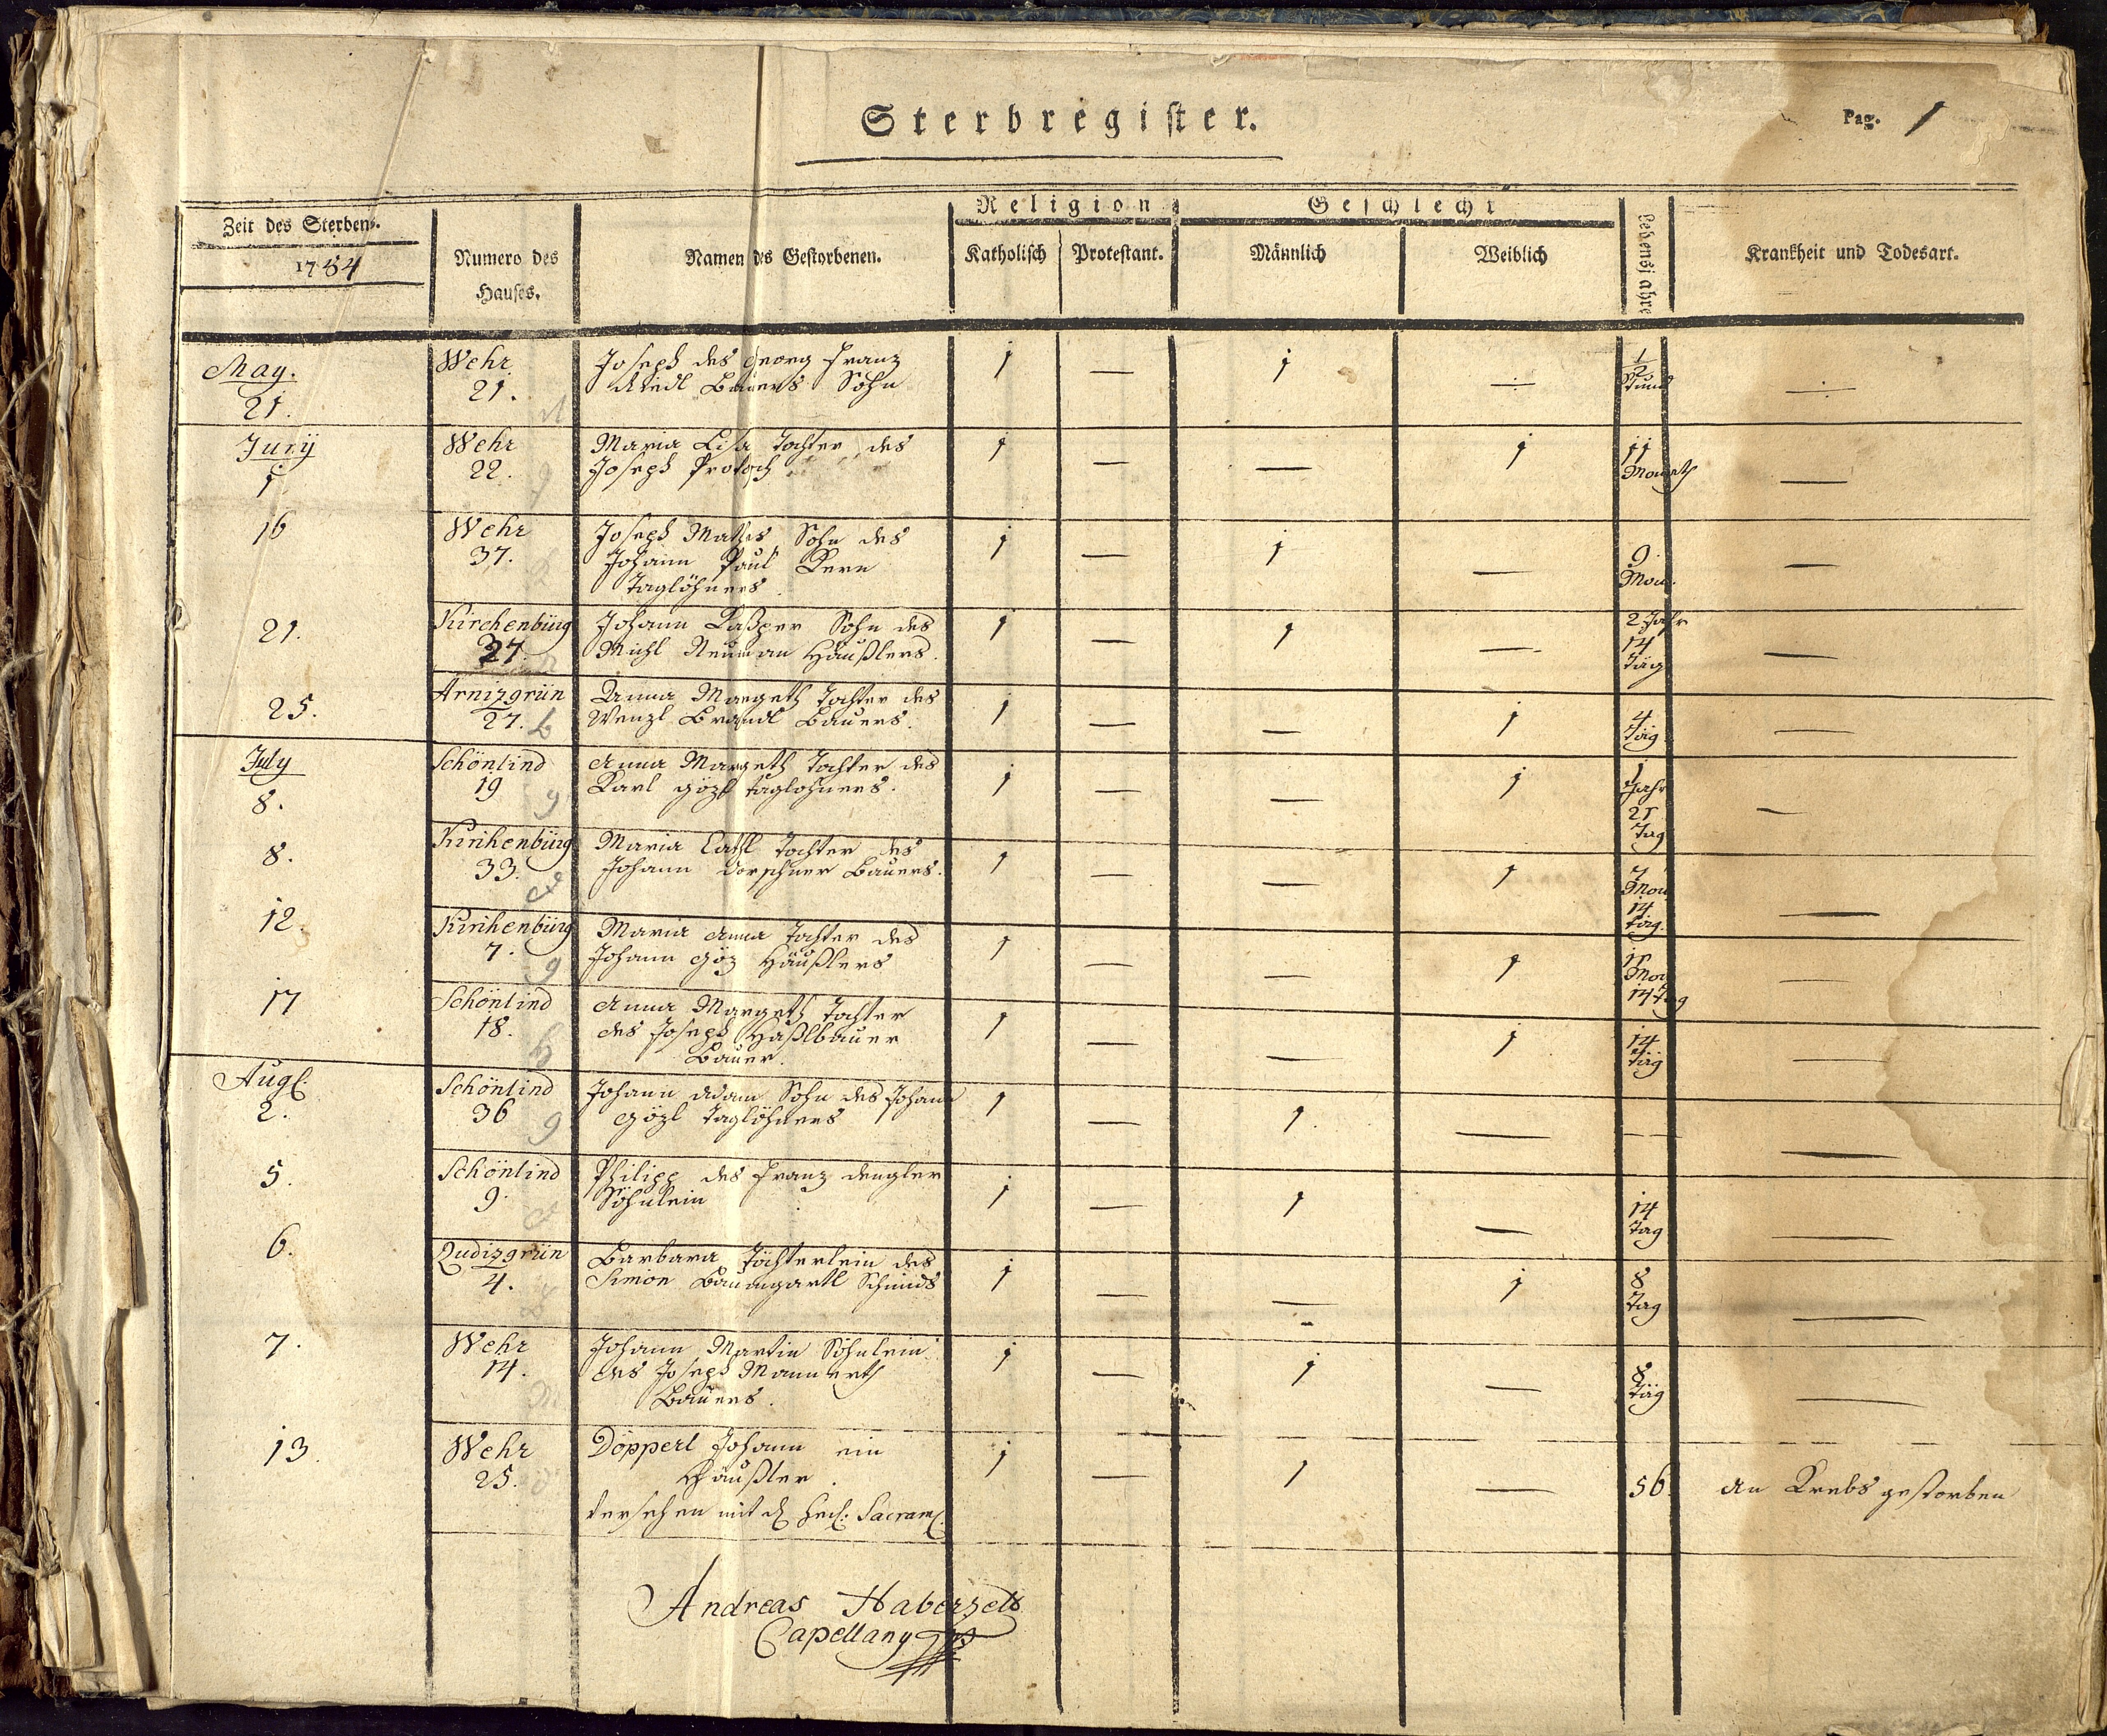 Sterbregister.
Pag. 1
Zeit des Sterbens.
1784
Numero des
Hauses.
Namen des Gestorbenen.
Religion
Katholisch
Protestant.
Geschlecht
Männlich
Weiblich
Lebensjahre
Krankheit und Todesart.
May.
21.
Wehr
21.
Joseph des Georg Franz
Riedl Bauers Sohn
1 — 1 —
1/2
Stund
—
Junÿ
1
Wehr
22.
Maria Lisa Tochter des
Joseph
1 — — 1
11
Monath
—
16
Wehr
37.
Joseph Mathes Sohn des
Johann Paul Kern
Taglöhners
1 — 1 —
9
Mon.
—
21.
Kirchenbürg
27.
Johann Kaßper Sohn des
Michl Neuman Häußlers.
1 — 1 —
2 Jahr
14
Täg
—
25.
Arnizgrün
27.
Anna Margeth Tochter des
Wenzl Brandl Bauers.
1 — — 1
4
Täg
—
July
8.
Schönlind
19
Anna Margeth Tochter des
Karl Gözl Taglohners.
1 — — 1
1
Jahr
21
Tag
—
8.
Kirihenbürg
33.
Maria Cathl Tochter des
Johann Dorschner Bauers.
1 — — 1
7
Mon
14
Täg.
—
12.
Kirihenbürg
7.
Maria Anna Tochter des
Johann Göz Häußlers
1 — — 1
11
Mon
14 Täg
—
17
Schönlind
18.
Anna Margeth Tochter
des Joseph Haßlbauer
Bauer.
1 — — 1
14
Täg
—
Aug.
2.
Schönlind
36
Johann Adam Sohn des Johann
Gözl Taglöhners
1 — 1. — —
—
5.
Schönlind
9.
Philipp des Franz Dengler
Söhnlein
1 — 1 —
14
Tag
—
6.
Qudizgrün
4.
Barbara Töchterlein des
Simon Baumgartl Schmids
1 — — 1
8
Tag
—
7.
Wehr
14.
Johann Martin Söhnlein
des Joseph Mannerth
Bauers.
1 — 1 —
8
Täg
—
13.
Wehr
25.
Döpperl Johann ein
Häußler.
Versehen mit d heil: Sacram.
1 — 1 —
56.
An Krebs gestorben
Andreas Haberzetl
Capellany